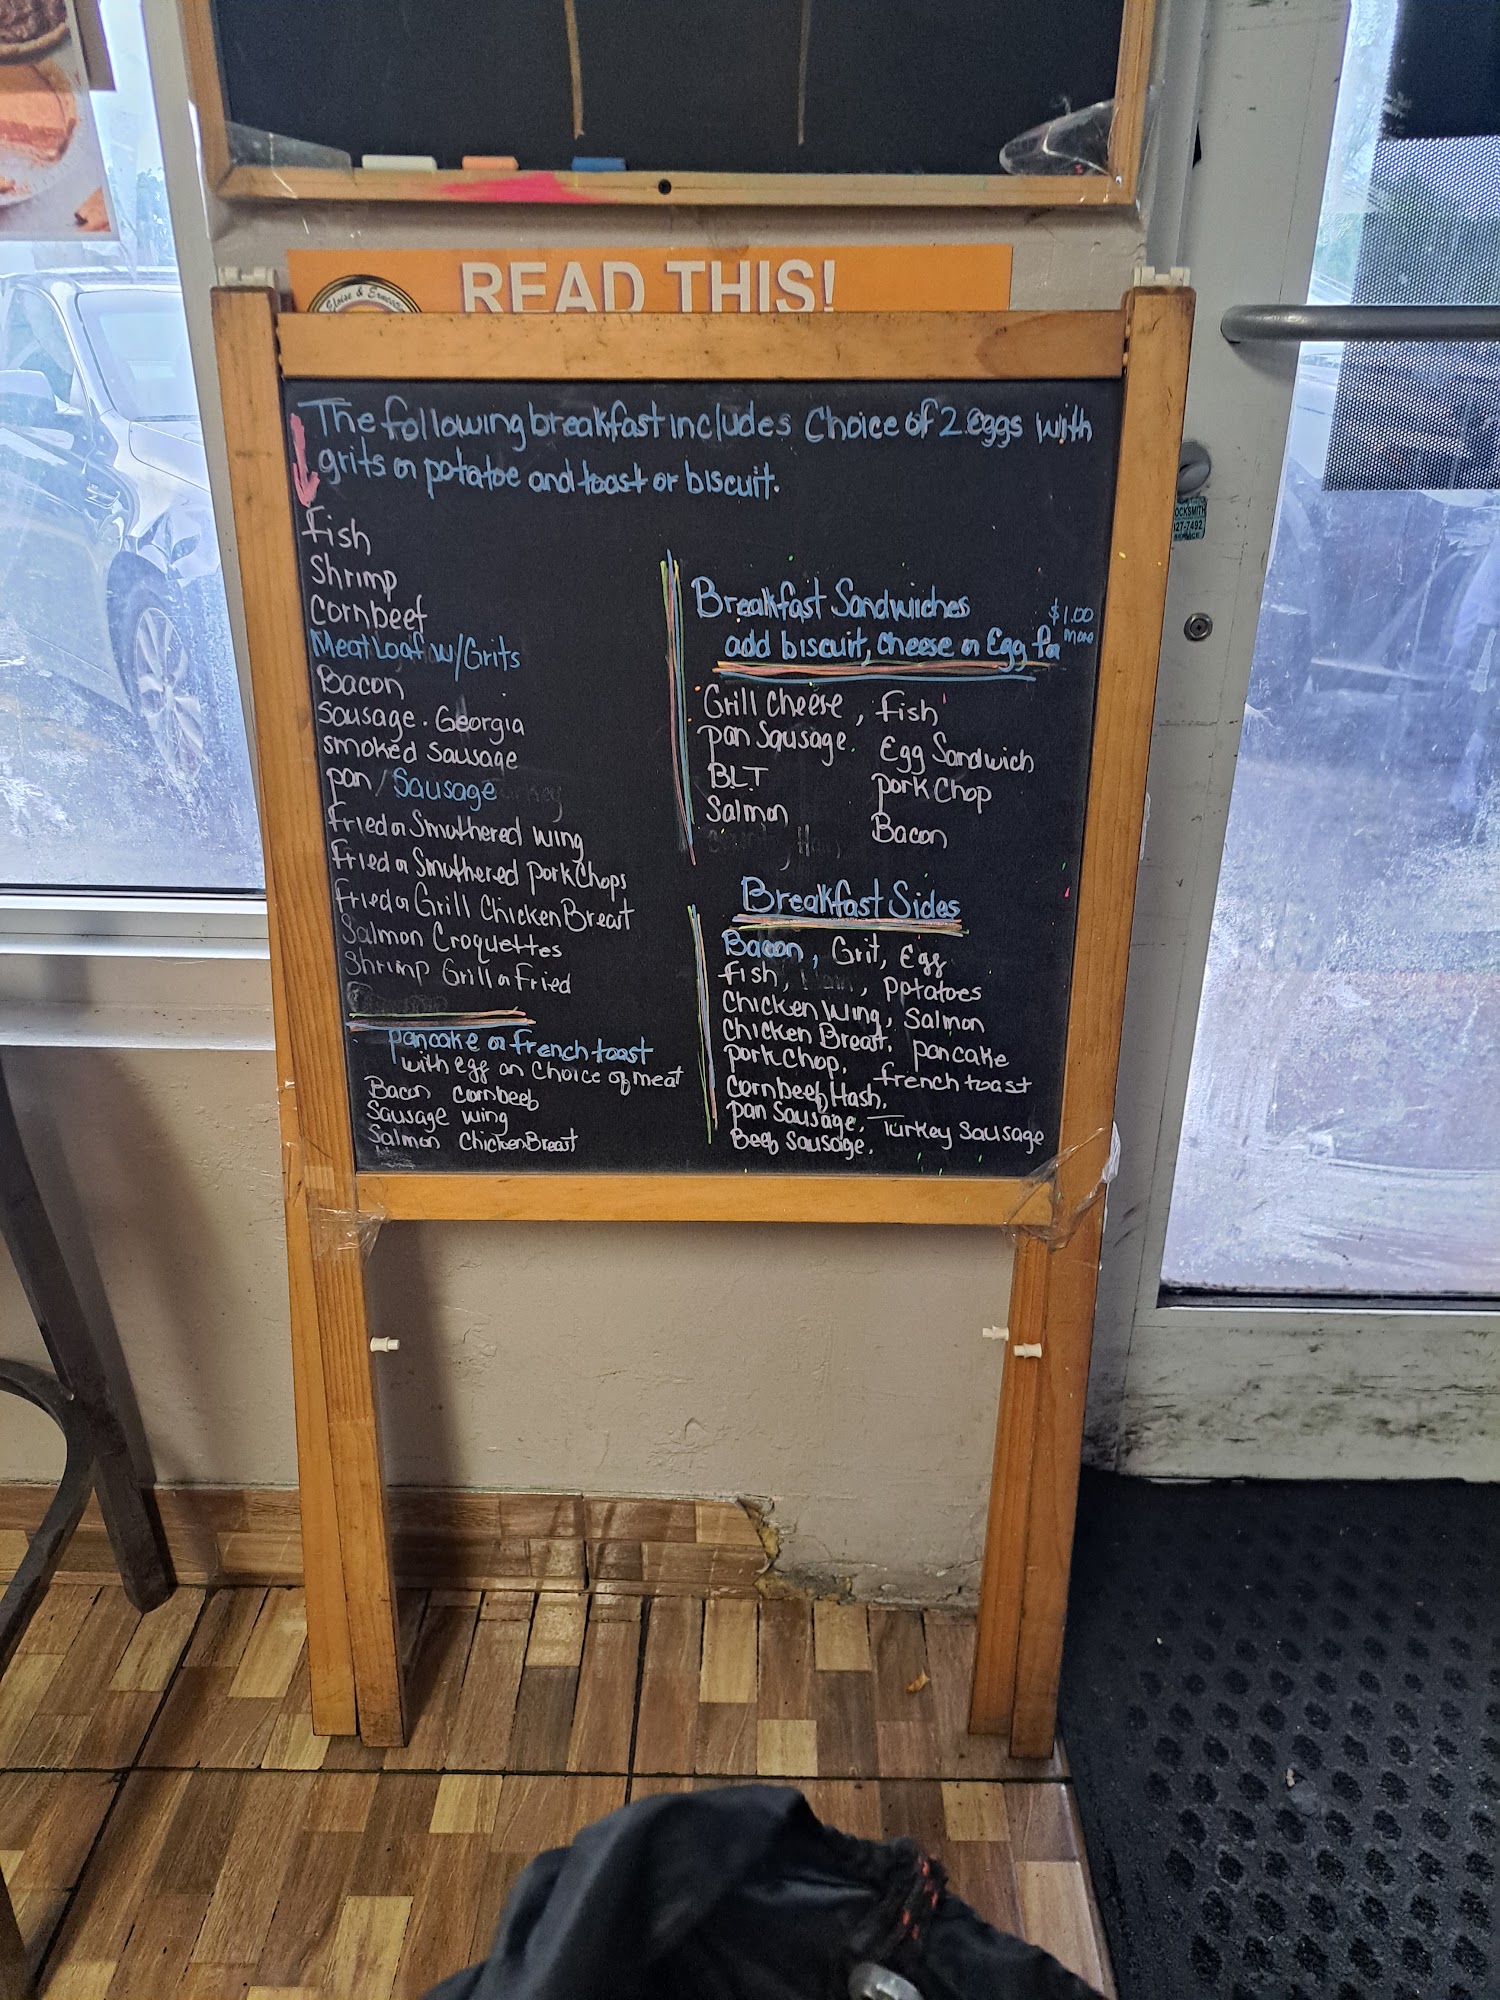 READ THIS!
Eloise & Ernestine
The following breakfast includes Choice of 2 eggs with
grits or potatoe and toast or biscuit.
Fish
Shrimp
Cornbeef
Meat Loaf w/Grits
Bacon
Sausage. Georgia
smoked Sausage
pan/Sausage
Fried or Smuthered wing
Fried or Smuthered porkChops
Fried or Grill Chicken Breast
Salmon Croquettes
Shrimp Grill or Fried
pancake or french toast
with egg or choice of meat
Bacon cornbeef
Sausage wing
Salmon Chicken Breast
Breakfast Sandwiches
add biscuit, cheese or Egg for $1.00 more
Grill Cheese, Fish
pan Sausage. Egg Sandwich
B.L.T pork Chop
Salmon Bacon
Breakfast Sides
Bacon, Grit, Egg
fish, , potatoes
Chicken Wing, Salmon
Chicken Breast, pancake
pork Chop, french toast
cornbeef Hash,
pan Sausage, Turkey Sausage
Beef Sausage,
OCKSMITH
27-7492